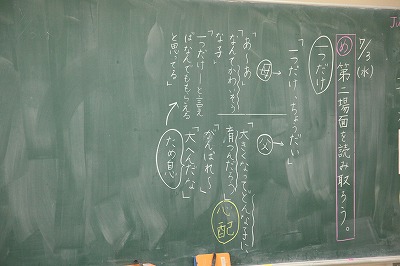 7/3(水)
め 第二場面を読み取ろう。
一つだけ
「一つだけ、ちょうだい」
母→
「あ〜あ」
なんてかわいそう
な子
「一つだけーと言え
ばなんでももらえる
と思ってる」
父→
「大きくなってどんな子に
育つんだろう」
心配
「がんばれ〜」
「大へんだな」
ため息